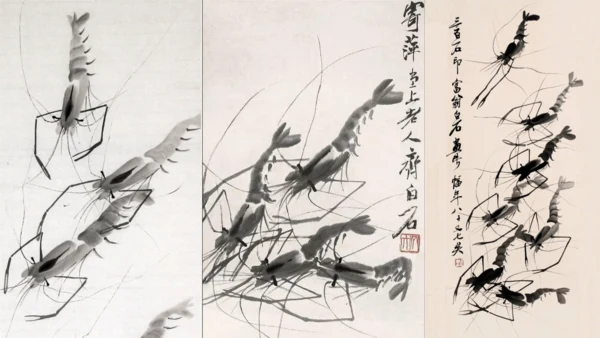 寄萍堂上老人齊白石
三百石印富翁白石年八十又七矣